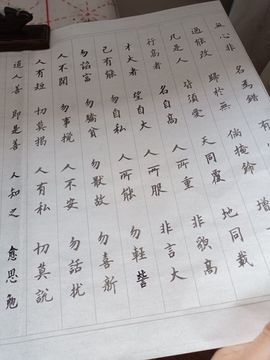 心非 名為錯 有
過能改 歸於無 倘掩飾 增
凡是人 皆須愛 天同覆 地同載
行高者 名自高 人所重 非貌高
才大者 望自大 人所服 非言大
己有能 勿自私 人所能 勿輕訾
勿諂富 勿驕貧 勿厭故 勿喜新
人不閒 勿事攪 人不安 勿話扰
人有短 切莫揭 人有私 切莫説
道人善 即是善 人知之 愈思勉